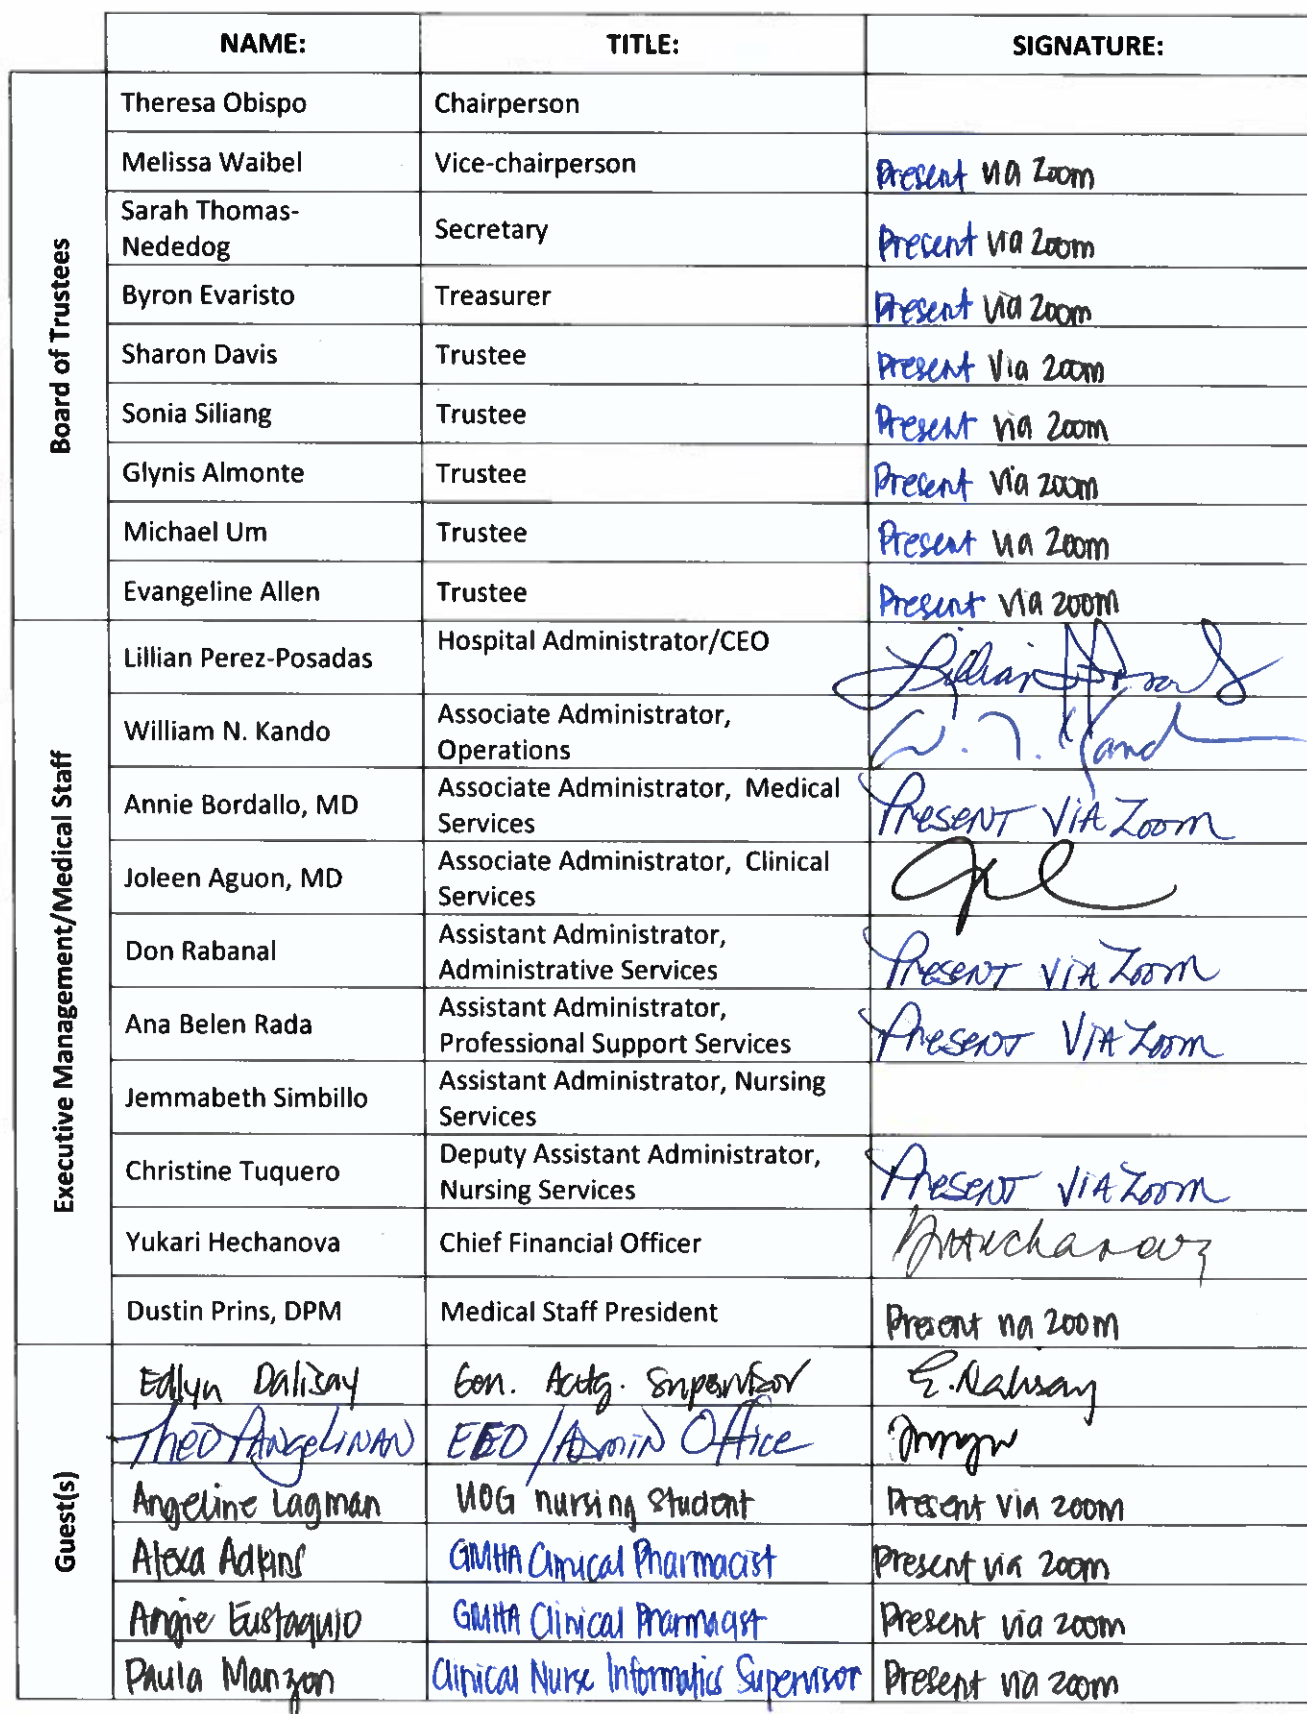 NAME: TITLE: SIGNATURE:
Board of Trustees
Theresa Obispo Chairperson
Melissa Waibel Vice-chairperson Present via Zoom
Sarah Thomas-
Nededog Secretary Present via Zoom
Byron Evaristo Treasurer Present via Zoom
Sharon Davis Trustee Present Via Zoom
Sonia Siliang Trustee Present via Zoom
Glynis Almonte Trustee Present via zoom
Michael Um Trustee Present via Zoom
Evangeline Allen Trustee Present via zoom
Executive Management/Medical Staff
Lillian Perez-Posadas Hospital Administrator/CEO
William N. Kando Associate Administrator,
Operations W. N. Kando
Annie Bordallo, MD Associate Administrator, Medical
Services Present VIA Zoom
Joleen Aguon, MD Associate Administrator, Clinical
Services
Don Rabanal Assistant Administrator,
Administrative Services Present VIA Zoom
Ana Belen Rada Assistant Administrator,
Professional Support Services Present VIA Zoom
Jemmabeth Simbillo Assistant Administrator, Nursing
Services
Christine Tuquero Deputy Assistant Administrator,
Nursing Services Present VIA Zoom
Yukari Hechanova Chief Financial Officer
Dustin Prins, DPM Medical Staff President Present via zoom
Guest(s)
Edlyn Dalisay Gen. Acctg. Supervisor E. Dalisay
Theo Pangelinan EEO/Admin Office
Angeline Lagman UOG nursing student Present via zoom
Alexa Adkins GMHA Clinical Pharmacist Present via zoom
Angie Eustaquio GMHA Clinical Pharmacist Present via zoom
Paula Manzon Clinical Nurse Informatics Supervisor Present via zoom